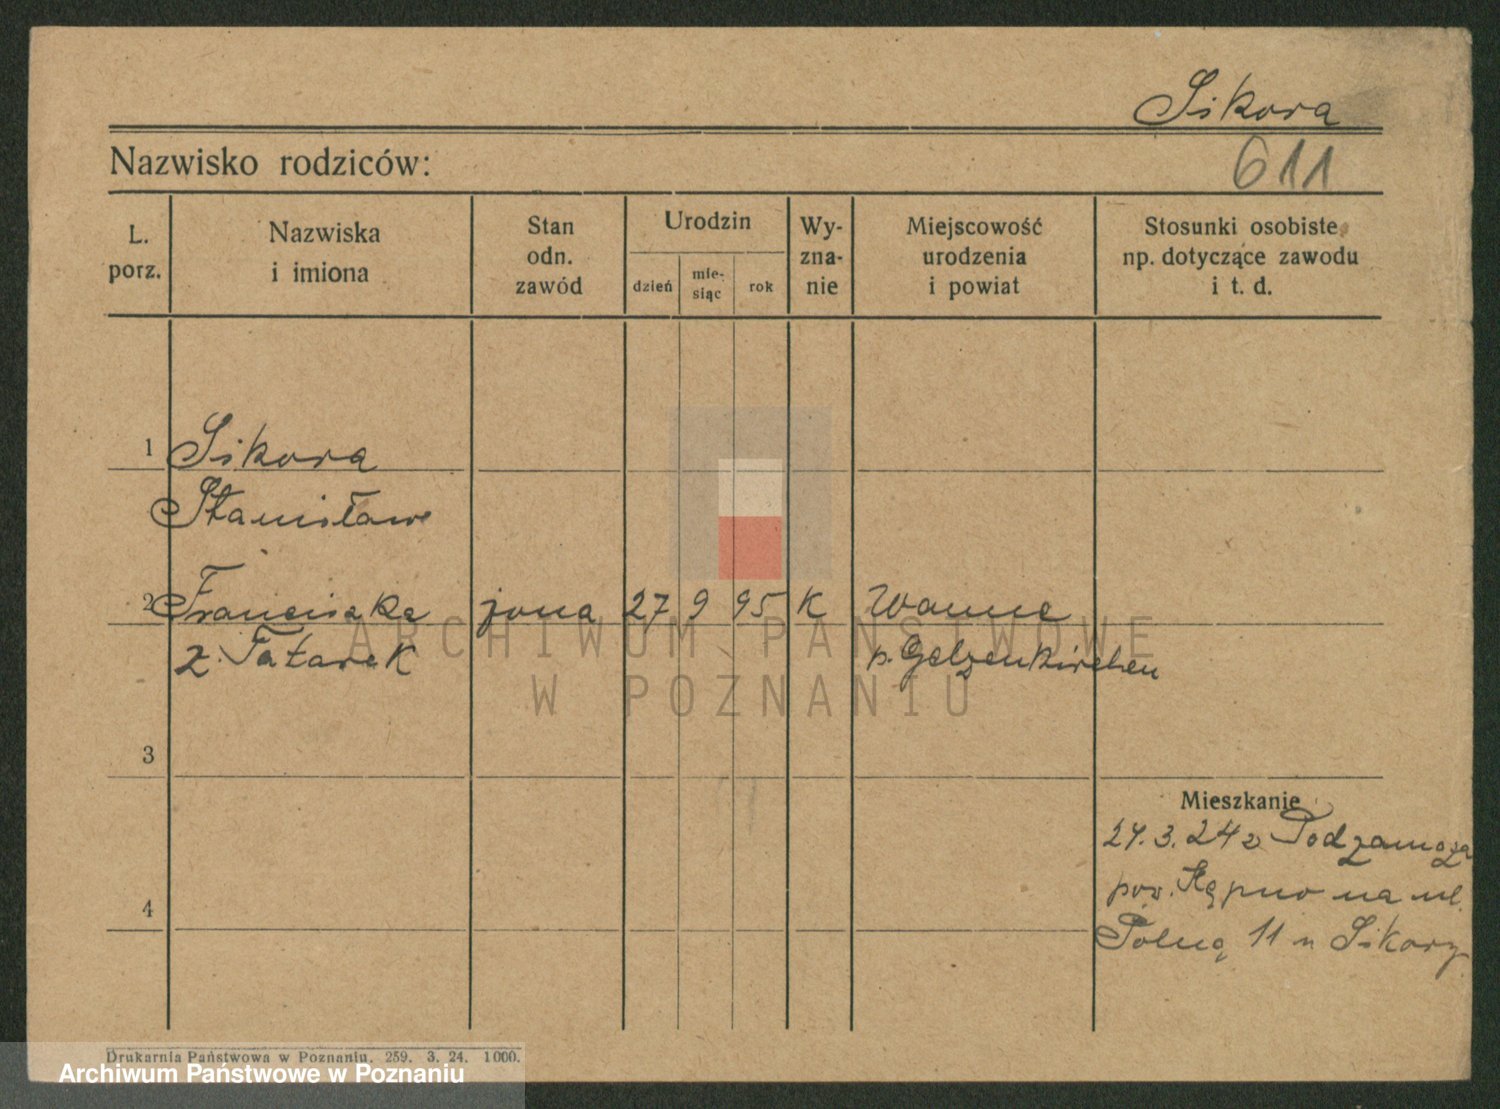 Sikora
Nazwisko rodziców:
611
L. porz.
Nazwiska i imiona
Stan odn. zawód
Urodzin
dzień
mie-
siąc
rok
Wy-
zna-
nie
Miejscowość urodzenia i powiat
Stosunki osobiste, np. dotyczące zawodu i t. d.
1 Sikora
Stanisław
2 Franciszka żona 27 9 95 K Wanne
z. Tatarek p. Gelzenkirchen
3
Mieszkanie
24 z Podzamcza
pow. Kępno na ul.
4
Polną 11 u Sikory
ARCHIWUM PAŃSTWOWE
W POZNANIU
Drukarnia Państwowa w Poznaniu. 259. 3. 24. 1000.
Archiwum Państwowe w Poznaniu